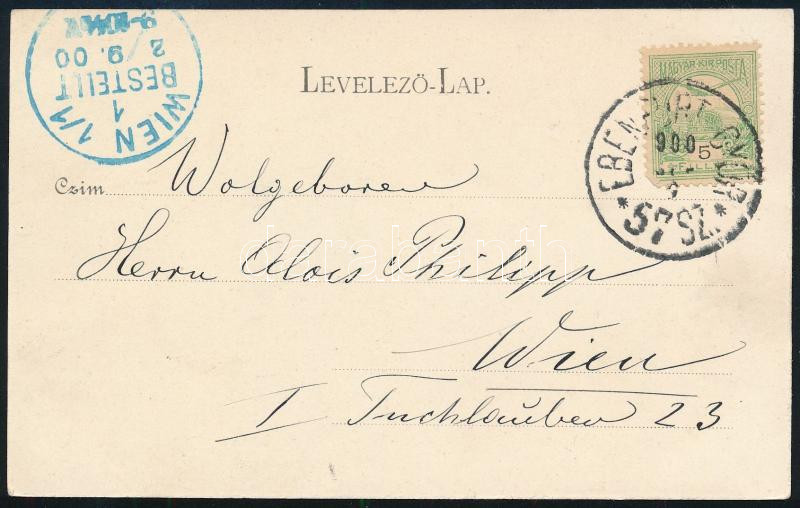 WIEN 1/1
BESTELLT
1
2/9.00
LEVELEZÖ-LAP.
MAGYAR KIR. POSTA
5
EBENFURT GYŐR
900
* 57 SZ. *
Czim
Wolgeboren
Herrn Alois Philipp
Wien
I Tuchlauben 23
darabanth